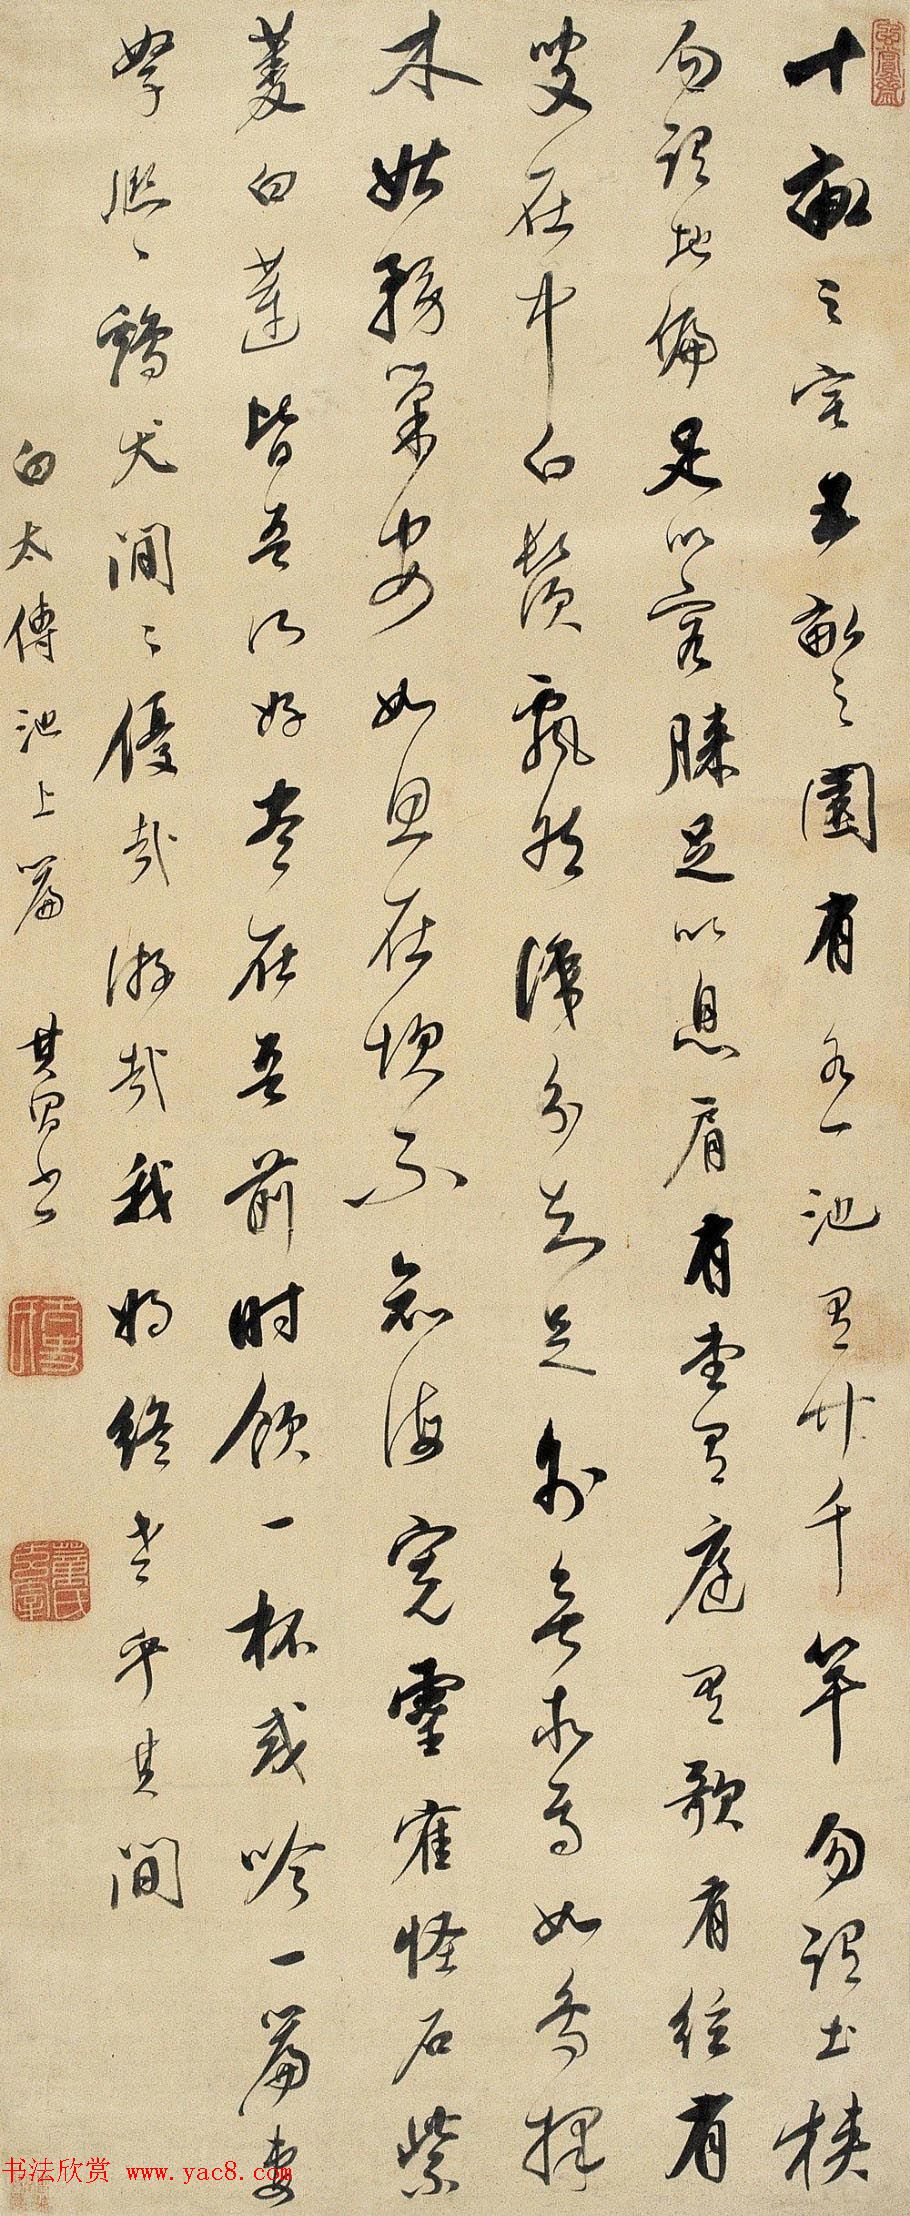 十畝之宅五畝之園有水一池有竹千竿勿謂土狹
勿謂地偏足以容膝足以息肩有堂有庭有歌有絃有
叟在中白鬚飄然識分知足外無求焉如鳥擇
木姑務巢安如在坎不知海寬靈隺怪石紫
菱白蓮皆吾所好盡在吾前時飲一杯或吟一篇妻
孥熙〻雞犬閒〻優哉游哉我將終老乎其間
白太傅池上篇 其昌書
玄賞齋
董氏玄宰
书法欣赏 www.yac8.com